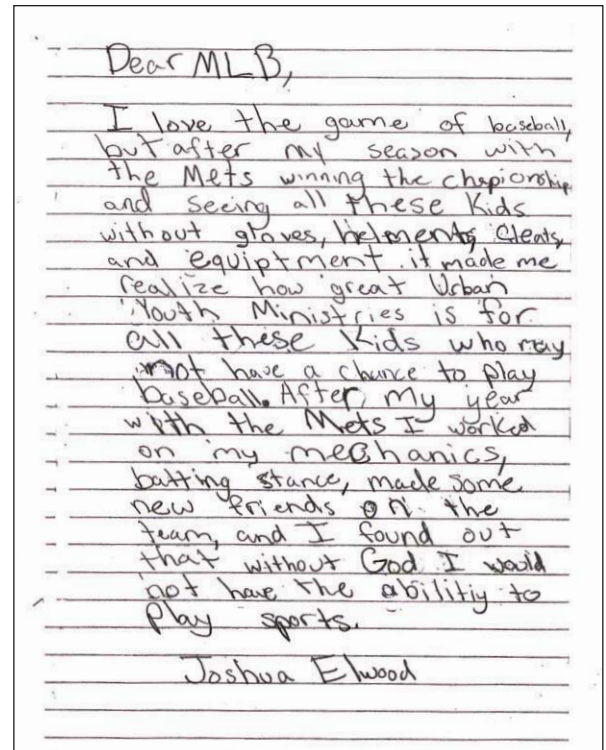 Dear MLB,
I love the game of baseball,
but after my season with
the Mets winning the chapionship
and seeing all these Kids
without gloves, helments, Cleats,
and equiptment. it made me
realize how great Urban
Youth Ministries is for
all these Kids who may
not have a chance to play
baseball. After my year
with the Mets I worked
on my mechanics,
batting stance, made some
new friends on the
team, and I found out
that without God I would
not have the abilitiy to
play sports.
Joshua Elwood